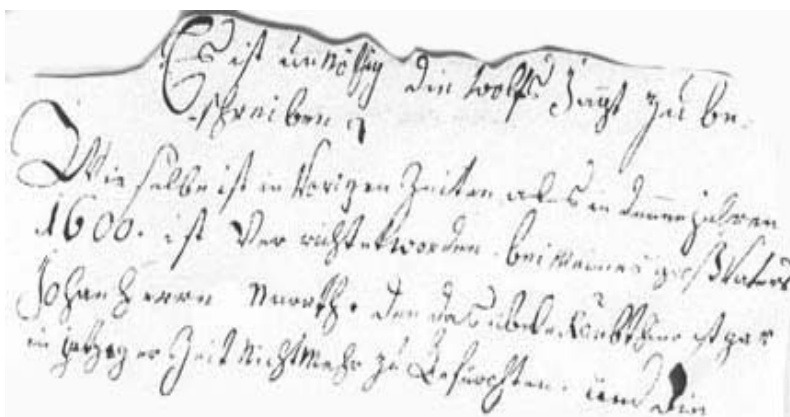 Es ist unnöthig die wolfs Jagt zu be-
-schreiben
Wie selbe ist in Vorigen Zeiten als in denen jahren
1600. ist Ver richtet worden. bei meines großVaters
Johan Herrn Den das übele ist gar
in jetziger Zeit Nicht Mehr zu Befürchten. und Die